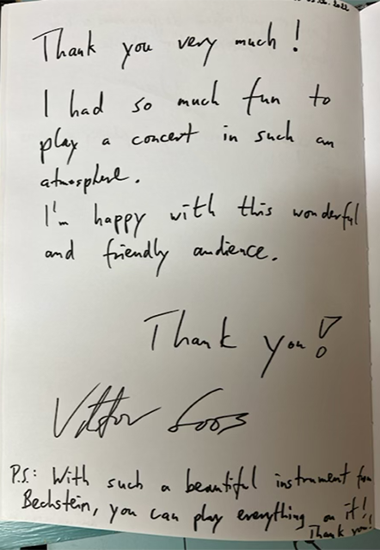 Thank you very much!
I had so much fun to
play a concert in such an
atmosphere.
I'm happy with this wonderful
and friendly audience.
Thank you!
Viktor Soos
P.S.: With such a beautiful instrument from
Bechstein, you can play everything on it!
Thank you!